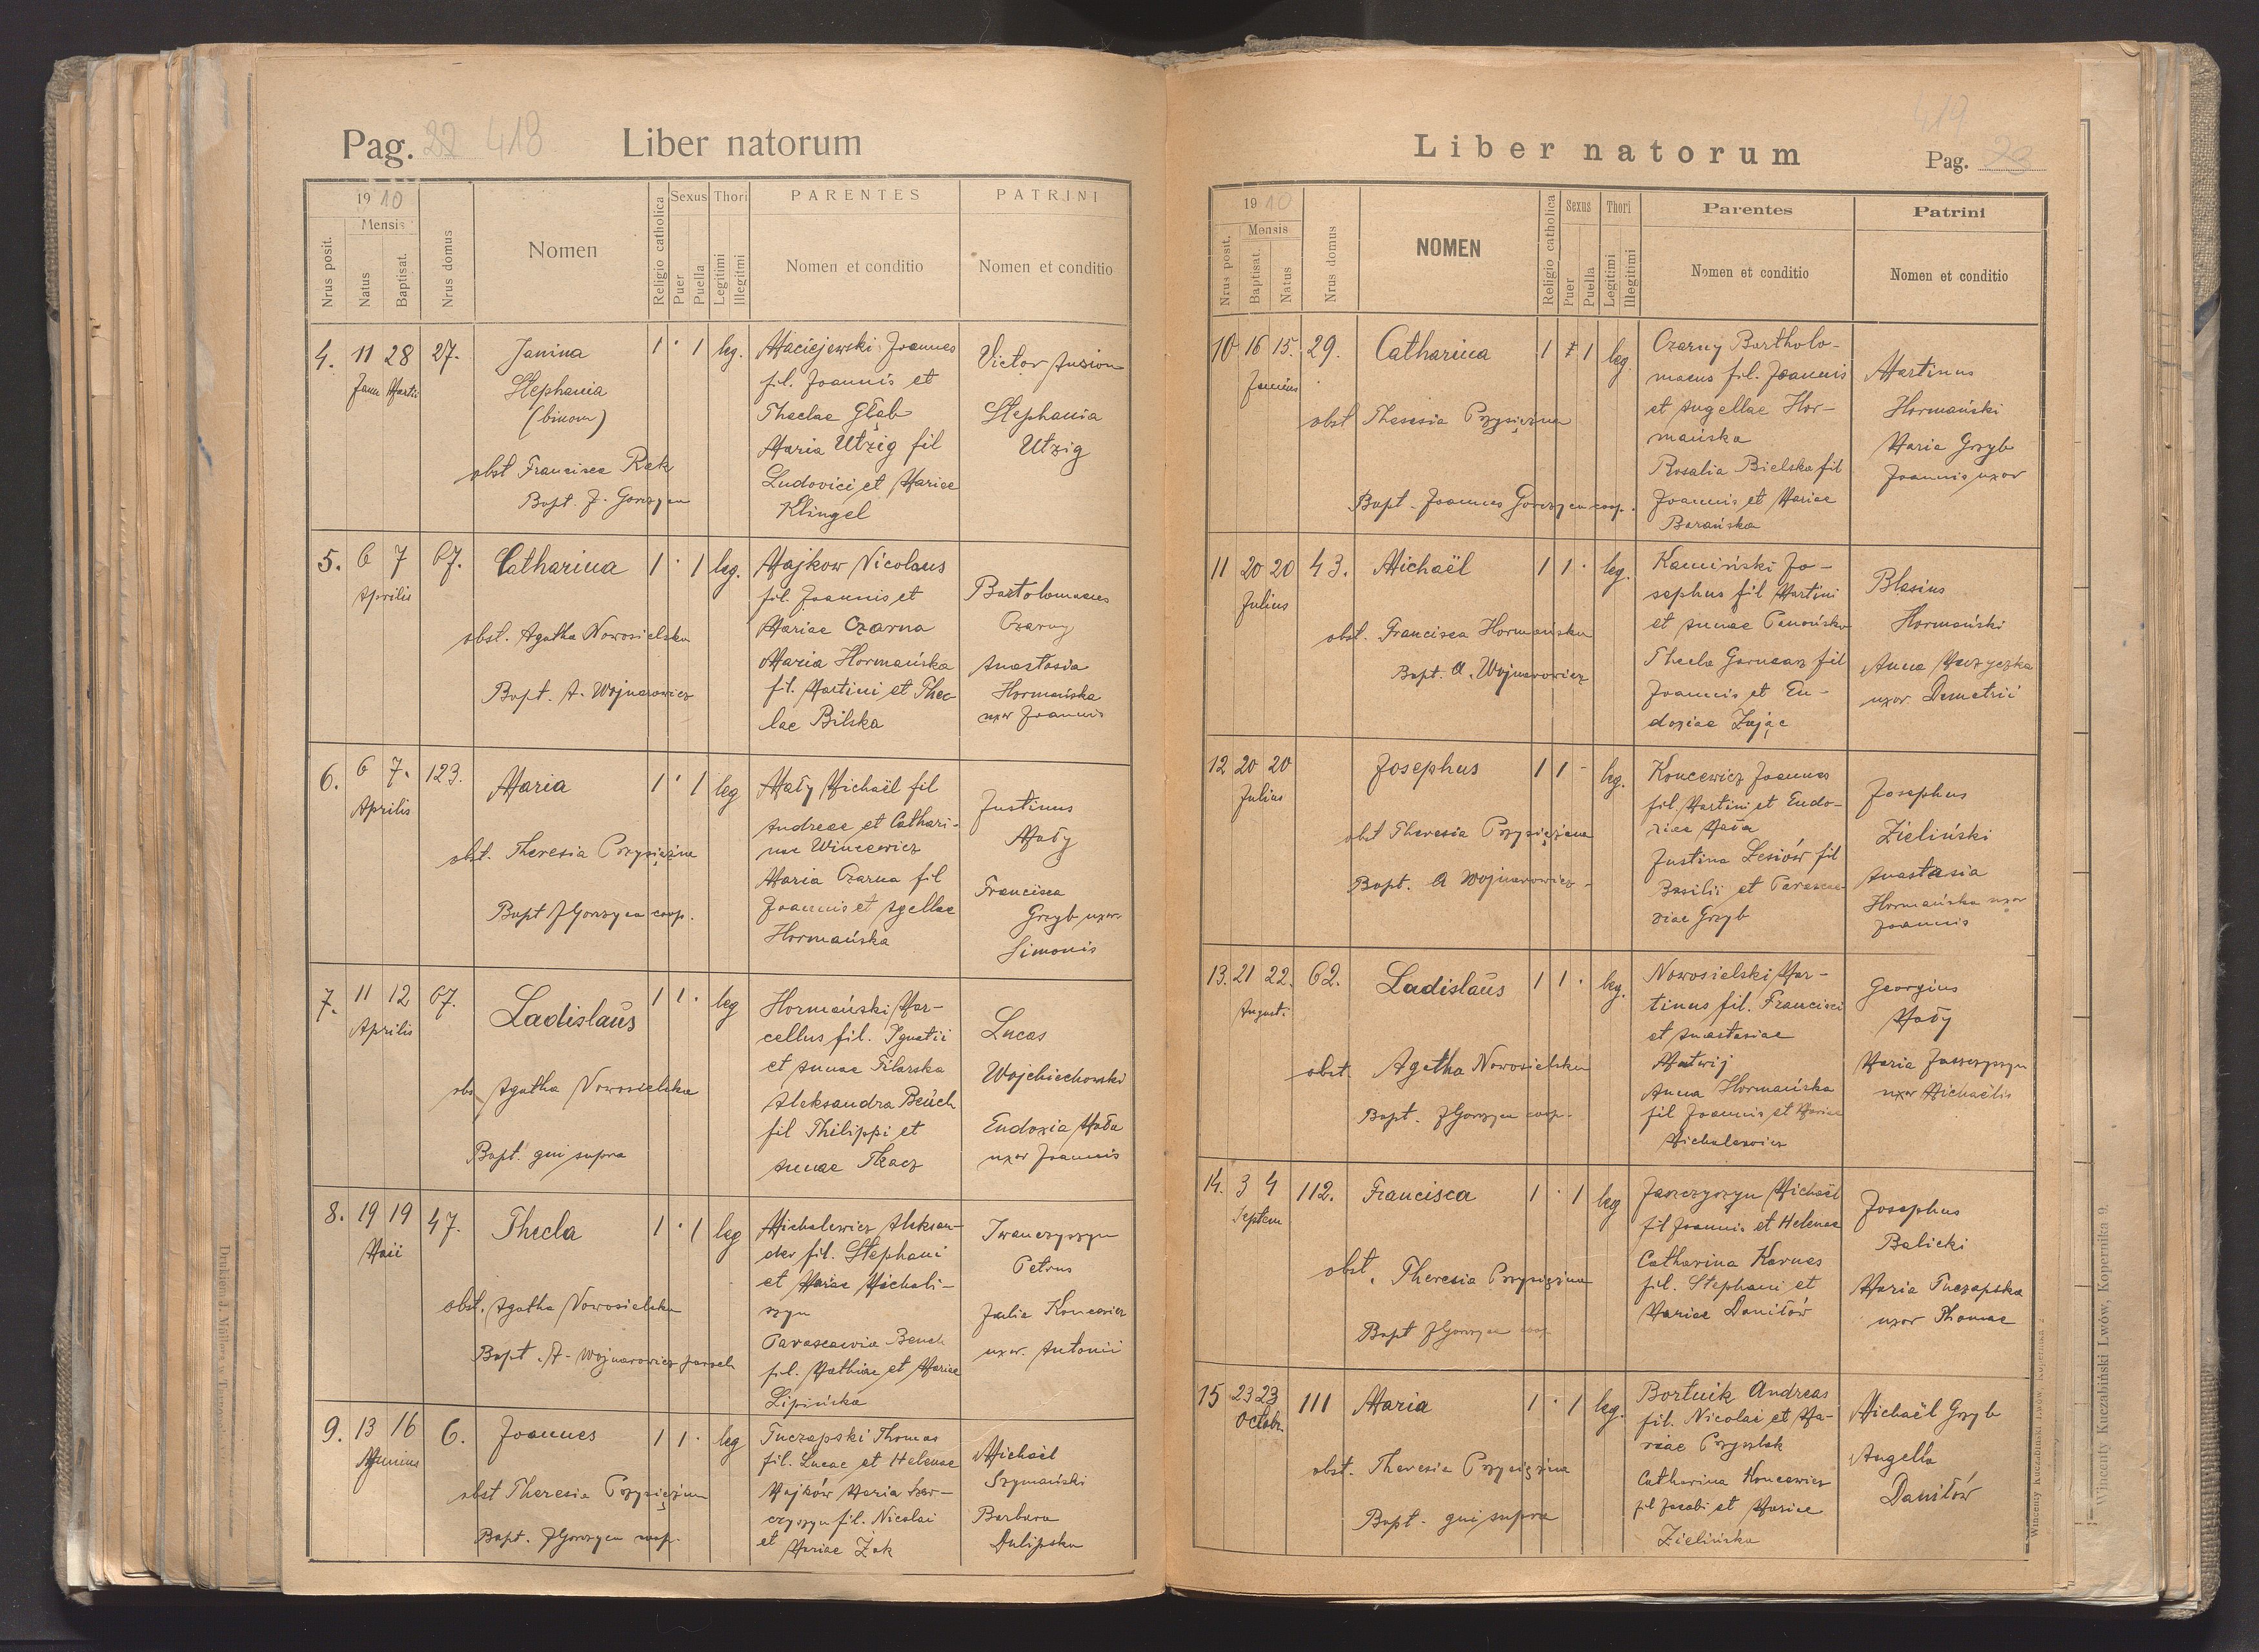 Pag. 22 418 Liber natorum
1910
Mensis
Nrus posit.
Natus
Baptisat.
Nrus domus
Nomen
Religio catholica
Sexus
Puer
Puella
Thori
Legitimi
Illegitmi
PARENTES
Nomen et conditio
PATRINI
Nomen et conditio
4. 11 28 27.
Janu Martii
Janina
Stephania
(binom)
obst Francisca Rak
Bapt. J. Gorzyca
1 · 1 leg.
Maciejewski Joannes
fil. Joannis et
Theclae Głąb
Maria Utzig fil
Ludovici et Mariae
Klingel
Victor
Stephania
Utzig
5. 6 7 67.
Aprilis
Catharina
obst. Agatha Nowosielska
Bapt. A. Wojnarowicz
1 · 1 leg.
Majkow Nicolaus
fil. Joannis et
Mariae Czarna
Maria Hormańska
fil. Martini et Thec
lae Bilska
Bartolomaeus
Czarny
Anastasia
Hormańska
uxor Joannis
6. 6 7. 123.
Aprilis
Maria
obst. Theresia Przysiężna
Bapt J Gorzyca coop.
1 · 1 leg
Mały Michaël fil
Andreae et Cathari-
nae Wincewicz
Maria Czarna fil
Joannis et Agellae
Hormańska
Justinus
Mały
Francisca
Grzyb uxor
Simonis
7. 11 12 67.
Aprilis
Ladislaus
obs Agatha Nowosielska
Bapt. qui supra
1 1 · leg
Hormański Mar-
cellus fil. Ignatii
et Annae Filarska
Aleksandra Beüch
fil Philippi et
Annae Tkacz
Lucas
Wojchiechowski
Eudoxia Mała
uxor Joannis
8. 19 19 47.
Maii
Thecla
obst. Agatha Nowosielska
Bapt. A. Wojnarowicz paroch
1 · 1 leg
Michalewicz Aleksan-
der fil. Stephani
et Mariae Michali-
szyn
Parascewia Beuch
fil. Mathiae et Mariae
Lipińska
Iwanczyszyn
Petrus
Julia Koncewicz
uxor. Antonii
9. 13 16 6.
Junius
Joannes
obst Theresia Przysiężna
Bapt. J Gorzyca coop.
1 1 · leg
Tuczapski Thomas
fil. Lucae et Helenae
Majków Maria
czyszyn fil. Nicolai
et Mariae Żak
Michaël
Szymański
Barbara
Dulipska
419
Liber natorum Pag. 23
1910
Mensis
Nrus posit.
Baptisat.
Natus
Nrus domus
NOMEN
Religio catholica
Sexus
Puer
Puella
Thori
Legitimi
Illegitimi
Parentes
Nomen et conditio
Patrini
Nomen et conditio
10 16 15. 29.
Junius
Catharina
obst Theresia Przysiężna
Bapt. Joannes Gorzyca coop.
1 1 1 leg
Czarny Bartholo-
maeus fil. Joannis
et Angellae Hor-
mańska
Rosalia Bielska fil
Joannis et Mariae
Barańska
Martinus
Hormański
Maria Grzyb
Joannis uxor
11 20 20 43.
Julius
Michaël
obst. Francisca Hormańska
Bapt. A. Wojnarowicz
1 1 · leg.
Kamiński Jo-
sephus fil Martini
et Annae
Thecla Garncarz fil
Joannis et Eu-
doxiae Zając
Blasius
Hormański
Anna
uxor Demetrii
12 20 20
Julius
Josephus
obst Theresia Przysiężna
Bapt. A Wojnarowicz
1 1 - leg.
Koncewicz Joannes
fil. Martini et Eudo-
xiae Mała
Justina Lesiów fil
Basilii et Parasce-
viae Grzyb
Josephus
Zieliński
Anastasia
Hormańska uxor
Joannis
13. 21 22. 62.
August.
Ladislaus
obst. Agatha Nowosielska
Bapt. J Gorzyca coop.
1 1 · leg.
Nowosielski Mar-
tinus fil. Francisci
et Anastasiae
Matwij
Anna Hormańska
fil Joannis et Mariae
Michalewicz
Georgius
Mały
Maria Jaszczyszyn
uxor Michaëlis
14. 3 4 112.
Septem
Francisca
obst. Theresia Przysiężna
Bapt J Gorzyca coop
1 · 1 leg
Jaszczyszyn Michaël
fil Joannis et Helenae
Catharina Karnas
fil. Stephani et
Mariae Daniłów
Josephus
Balicki
Maria Tuczapska
uxor Thomae
15 23 23 111
Octobr
Maria
obst. Theresia Przysiężna
Bapt. qui supra
1 · 1 leg.
Bortnik Andreas
fil. Nicolai et Ma-
riae Przyszlak
Catharina Koncewicz
fil Jacobi et Mariae
Zielińska
Michaël Grzyb
Angella
Daniłów
Wincenty Kuczabiński Lwów, Kopernika 2
Wincenty Kuczabiński Lwów, Kopernika 9.